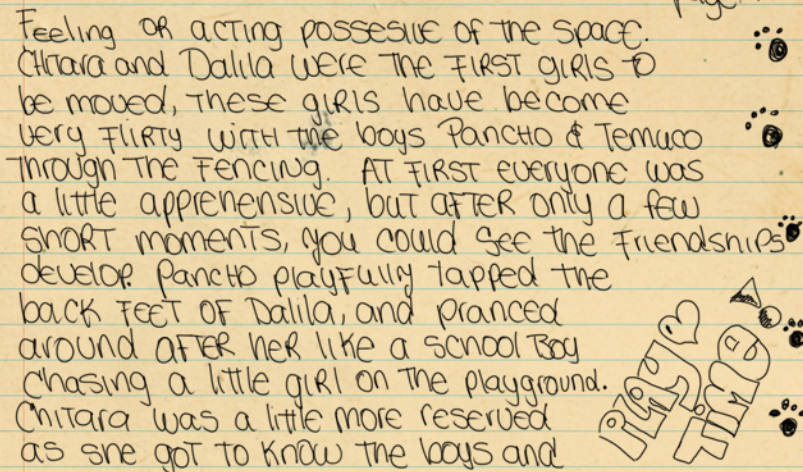 Page
Feeling OR acting possesive of the space.
Chitara and Dalila were the first girls to
be moved, these girls have become
very flirty with the boys Pancho & Temuco
through the fencing. At first everyone was
a little apprehensive, but after only a few
short moments, you could see the friendships
develop. Pancho playfully tapped the
back feet of Dalila, and pranced
around after her like a school boy
chasing a little girl on the playground.
Chitara was a little more reserved
as she got to know the boys and
PLAY
TIME!